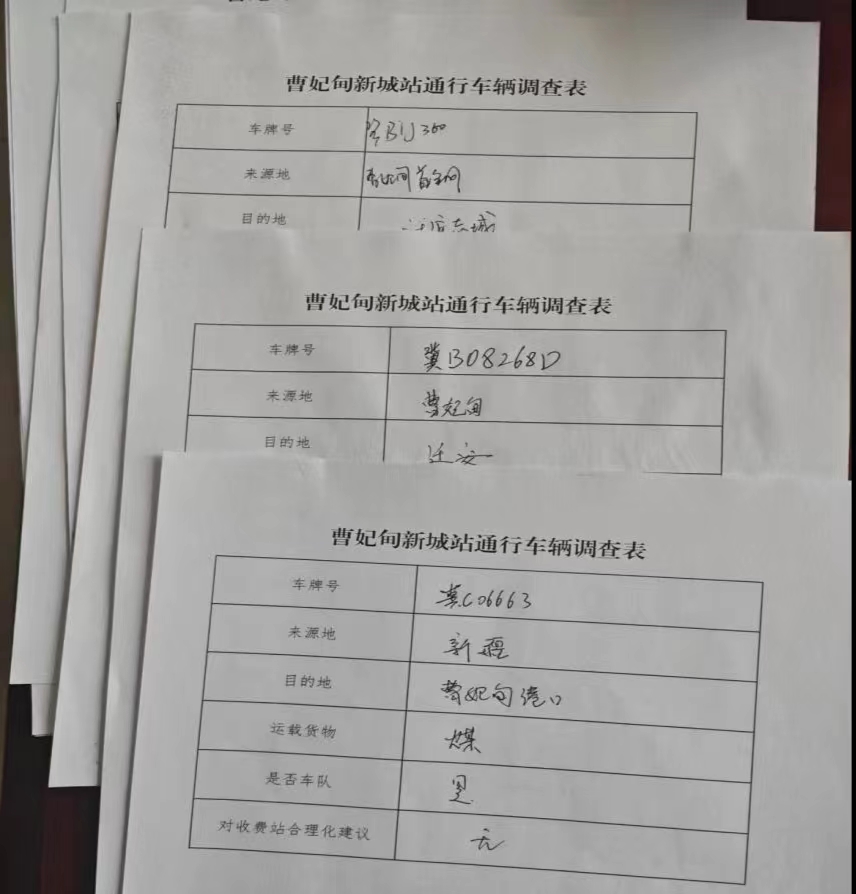 曹妃甸新城站通行车辆调查表
车牌号 冀B1J360
来源地 曹妃甸首钢
目的地 东城
曹妃甸新城站通行车辆调查表
车牌号 冀B08268D
来源地 曹妃甸
目的地 迁安
曹妃甸新城站通行车辆调查表
车牌号 冀C06663
来源地 新疆
目的地 曹妃甸港口
运载货物 煤
是否车队 是
对收费站合理化建议 无